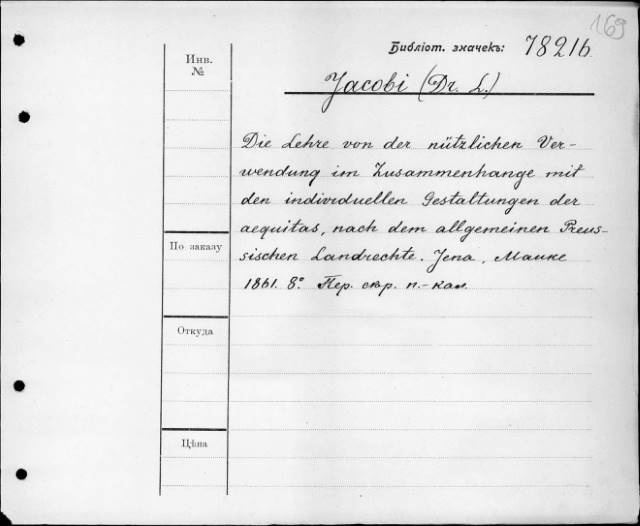 169
Библіот. значекъ: 78216
Инв.
№
Jacobi (Dr. L.)
Die Lehre von der nützlichen Ver-
wendung im Zusammenhange mit
den individuellen Gestaltungen der
aequitas, nach dem allgemeinen Preus-
sischen Landrechte. Jena, Mauke
1861. 8° Пер. скр. п.-кал.
По заказу
Откуда
Цѣна